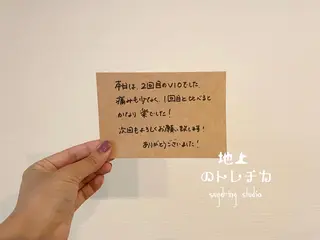 本日は、2回目のVIOでした。
痛みも少なく、1回目と比べると
かなり楽でした！
次回もよろしくお願い致します！
ありがとうございました！
地上
のトレチカ
sugaring studio